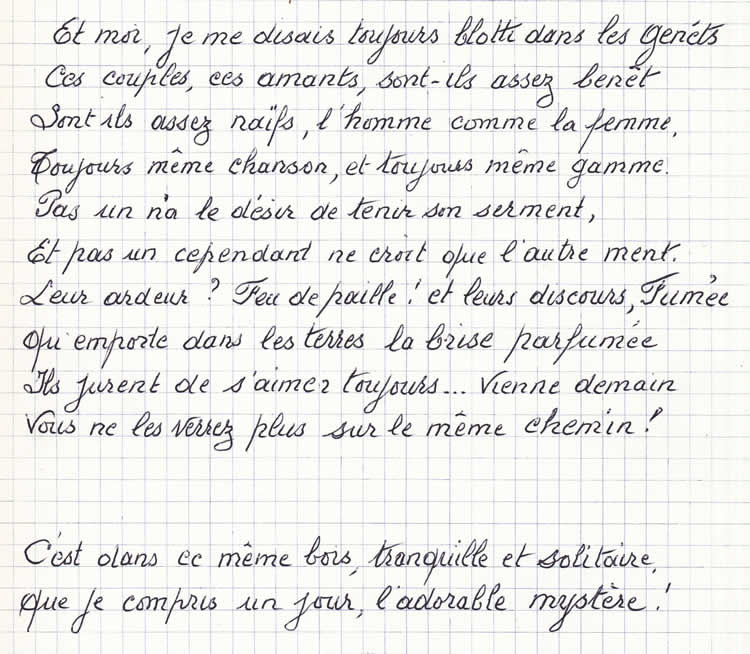 Et moi, je me disais toujours blotti dans les genêts
Ces couples, ces amants, sont-ils assez benêt
Sont ils assez naïfs, l'homme comme la femme,
Toujours même chanson, et toujours même gamme.
Pas un n'a le désir de tenir son serment,
Et pas un cependant ne croit que l'autre ment.
Leur ardeur ? Feu de paille ! et leurs discours, Fumée
Qu'emporte dans les terres la brise parfumée
Ils jurent de s'aimer toujours... Vienne demain
Vous ne les verrez plus sur le même chemin !
C'est dans ce même bois, tranquille et solitaire,
Que je compris un jour, l'adorable mystère !